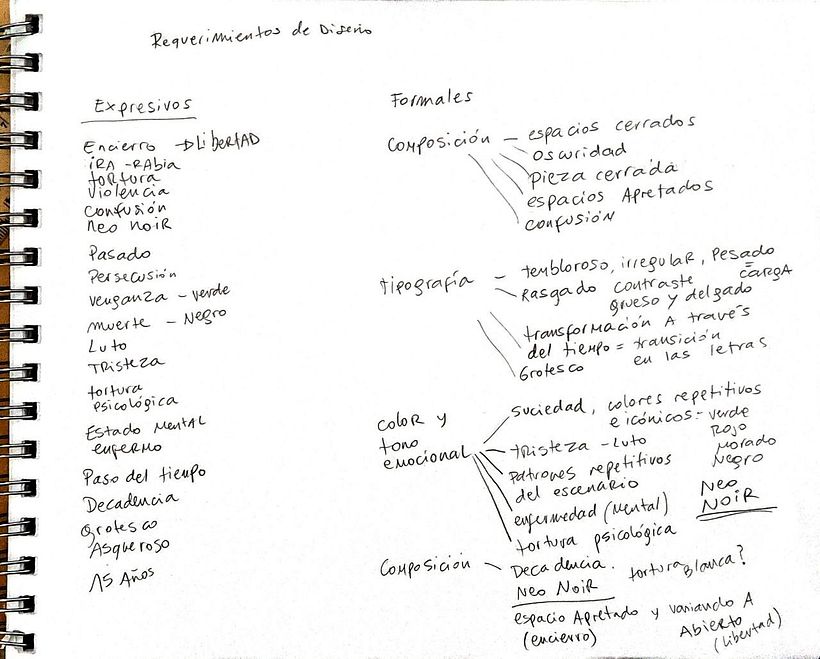 Requerimientos de Diseño
Expresivos
Encierro → Libertad
ira - Rabia
tortura
violencia
confusión
neo noir
Pasado
Persecusión
venganza - verde
muerte - Negro
Luto
Tristeza
tortura
psicológica
Estado Mental
enfermo
Paso del tiempo
Decadencia
Grotesco
Asqueroso
15 Años
Formales
Composición - espacios cerrados
oscuridad
Pieza cerrada
espacios Apretados
confusión
tipografía - tembloroso, irregular, pesado
= carga
Rasgado contraste
grueso y delgado
transformación A través
del tiempo = transición
en las letras
Grotesco
color y
tono
emocional
suciedad, colores repetitivos
e icónicos = verde
Rojo
morado
Negro
tristeza - Luto
Patrones repetitivos
del escenario
enfermedad (mental)
tortura psicológica
Neo
NOIR
Composición - Decadencia.
Neo Noir
tortura blanca?
espacio Apretado y variando A
(encierro)
Abierto
(libertad)